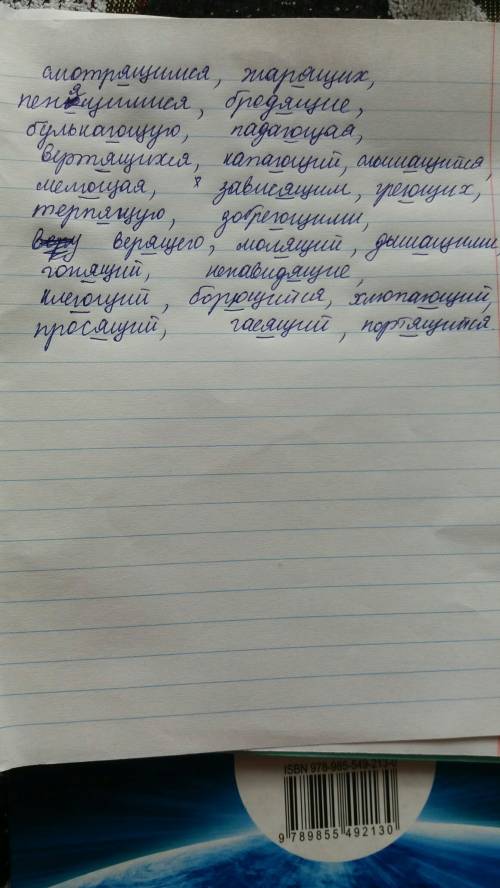 смотрящимся, жарящих,
пенящимися, бродящие,
булькающую, падающая,
вертящихся, капающий, слышащийся,
мелющая, зависящим, греющих,
терпящую, добреющими,
верящего, молящий, дышащими,
гонящий, ненавидящие,
клеющий, борющийся, хлопающий,
просящий, гасящий, портящийся
ISBN 978-985-549-213-0
9 789855 492130